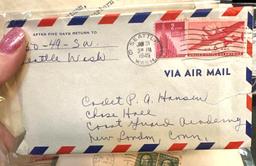 AFTER FIVE DAYS RETURN TO
-49-SW
Seattle Wash
SEATTLE
JAN 31
PM
1945
WASH.
VIA AIR MAIL
Cadet P. A. Hansen
Chase Hall
Coast Guard Academy
New London, Conn.